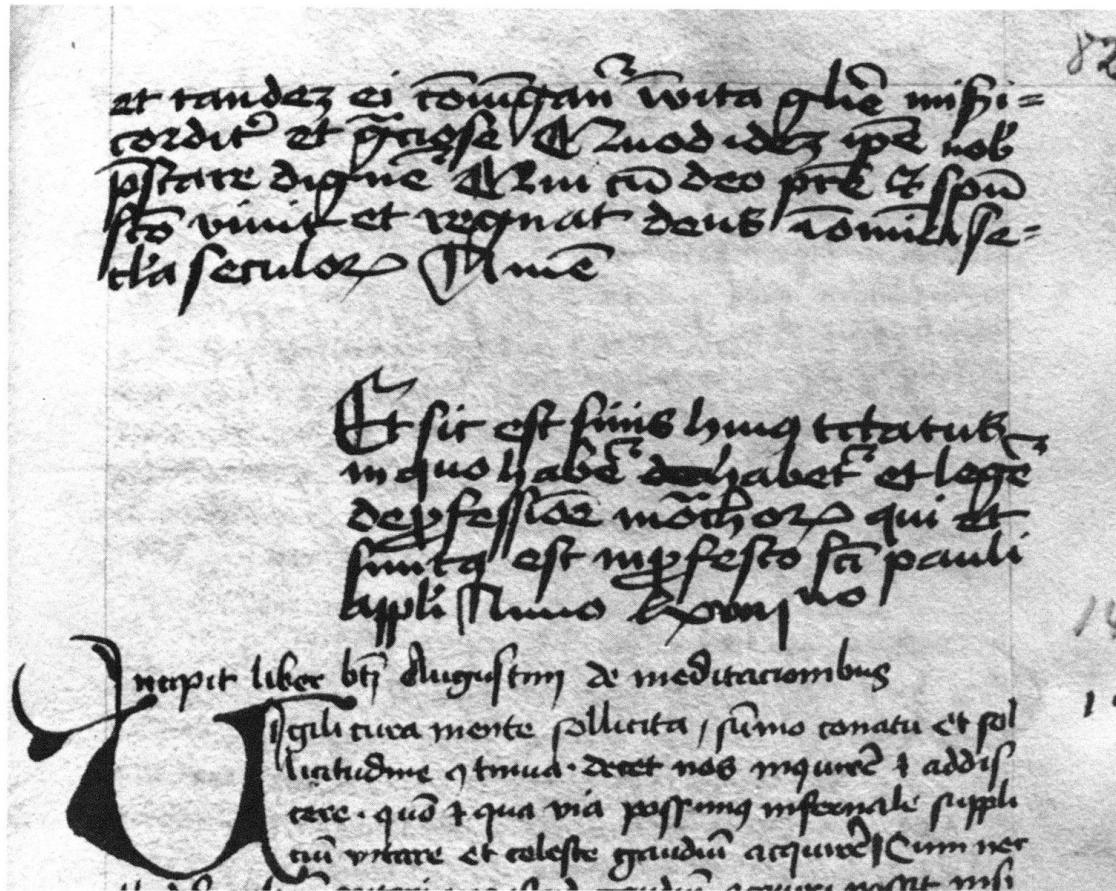 82
et tandez ei cōīūgan̄ ī vita glīē mis̄i=
cordit᷑ et gr̄ciose Quod idez ip̄e nob̛
p̄stare dignet᷑ Qui cū deo pr̄e et spū
scō viuit et regnat deus ī om̄ia se=
cl̄a seculoꝝ Amē
Et sic est finis huiꝰ tc̄tatus
in quo habet᷑ habet᷑ et leget᷑
de ꝓfessiōe mōchoꝝ qui et
finitꝰ est in ꝓfesto sc̄i pauli
app̄li Anno lxviii uo
Incipit liber bt̄i Augustinj de meditacionibus
Vigili cura mente sollicita / sūmo conatu et sol
licitudine ꝯtinua · decet nos inquirē ⁊ addis
cere · quō ⁊ qua via possimꝰ infernale suppli
ciū vitare et celeste gaudiū acquirē Cum nec
possit nisi